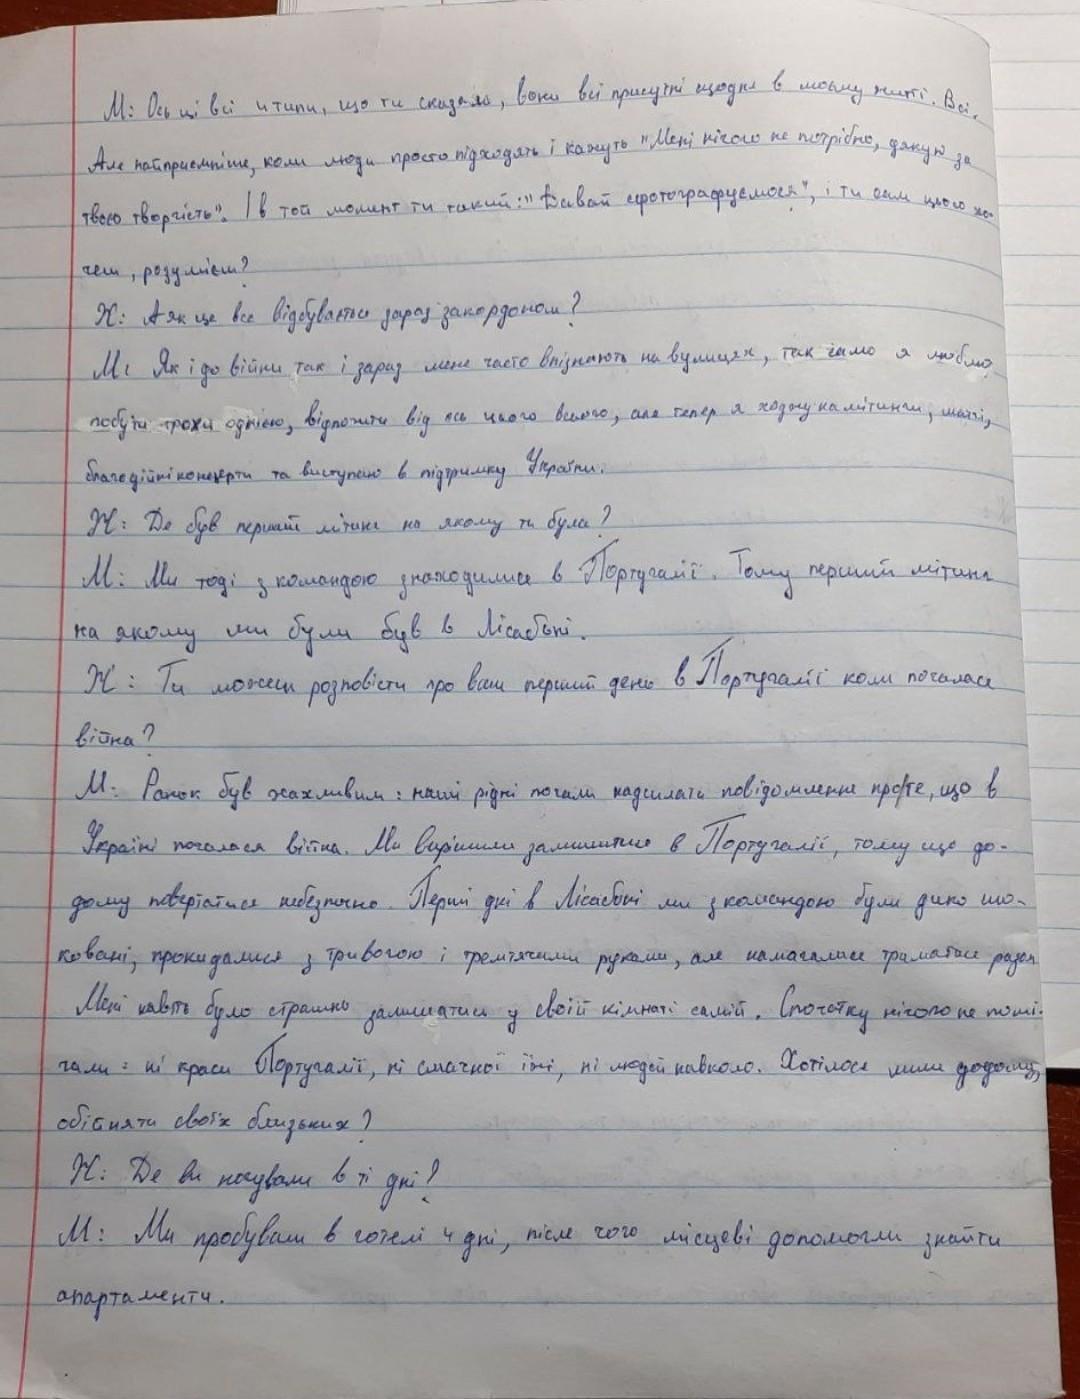 М: Ось ці всі типи, що ти сказала, вони всі присутні щодня в моєму житті. Всі.
Але найприємніше, коли люди просто підходять і кажуть "Мені нічого не потрібно, дякую за
твою творчість". І в той момент ти такий: "Давай сфотографуємося", і ти сам цього хо-
чеш, розумієш?
Ж: А як це все відбувається зараз закордоном?
М: Як і до війни так і зараз мене часто впізнають на вулицях, так само я люблю
побути трохи однією, відпочити від ось цього всього, але тепер я ходжу на мітинги,
благодійні концерти та виступаю в підтримку України.
Ж: Де був перший мітинг на якому ти була?
М: Ми тоді з командою знаходилися в Португалії. Тому перший мітинг
на якому ми були був в Лісабоні.
Ж: Ти можеш розповісти про ваш перший день в Португалії коли почалася
війна?
М: Ранок був жахливим: наші рідні почали надсилати повідомлення про те, що в
Україні почалася війна. Ми вирішили залишитися в Португалії, тому що до-
дому повертатися небезпечно. Перші дні в Лісабоні ми з командою були дико шо-
ковані, прокидалися з тривогою і тремтячими руками, але намагалися триматися разом
Мені навіть було страшно залишатися у своїй кімнаті самій. Спочатку нічого не помі-
чали: ні краси Португалії, ні смачної їжі, ні людей навколо. Хотілося лише додому,
обійняти своїх близьких?
Ж: Де ви ночували в ті дні?
М: Ми пробували в готелі 4 дні, після чого місцеві допомогли знайти
апартаменти.